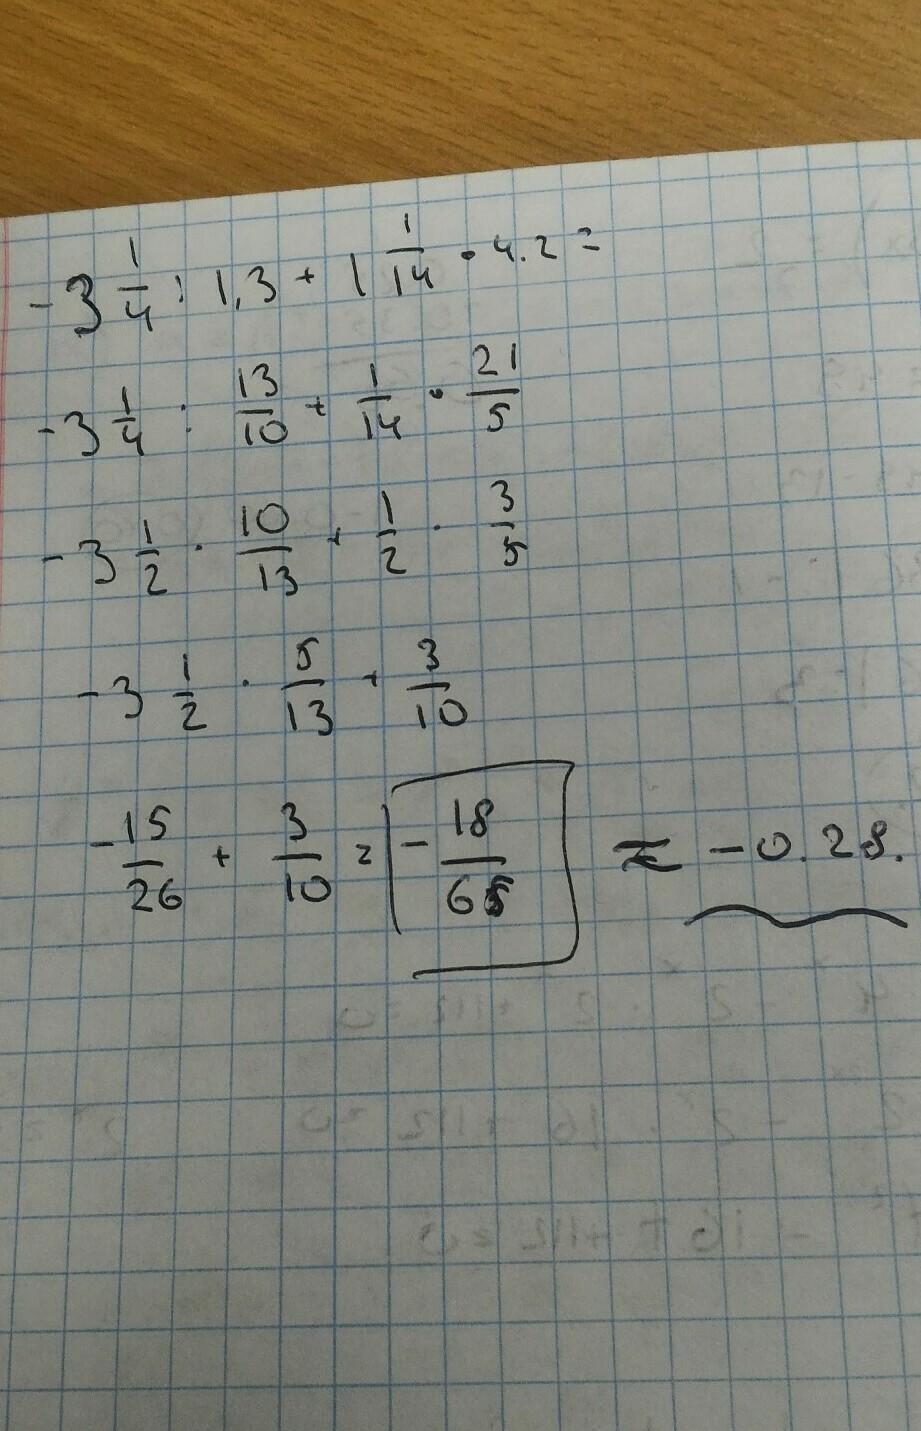 -3 1/4 : 1,3 + 1 1/14 · 4.2 =
-3 1/4 : 13/10 + 1/14 · 21/5
-3 1/2 · 10/13 + 1/2 · 3/5
-3 1/2 · 5/13 + 3/10
-15/26 + 3/10 = -18/65 ≈ -0.28.